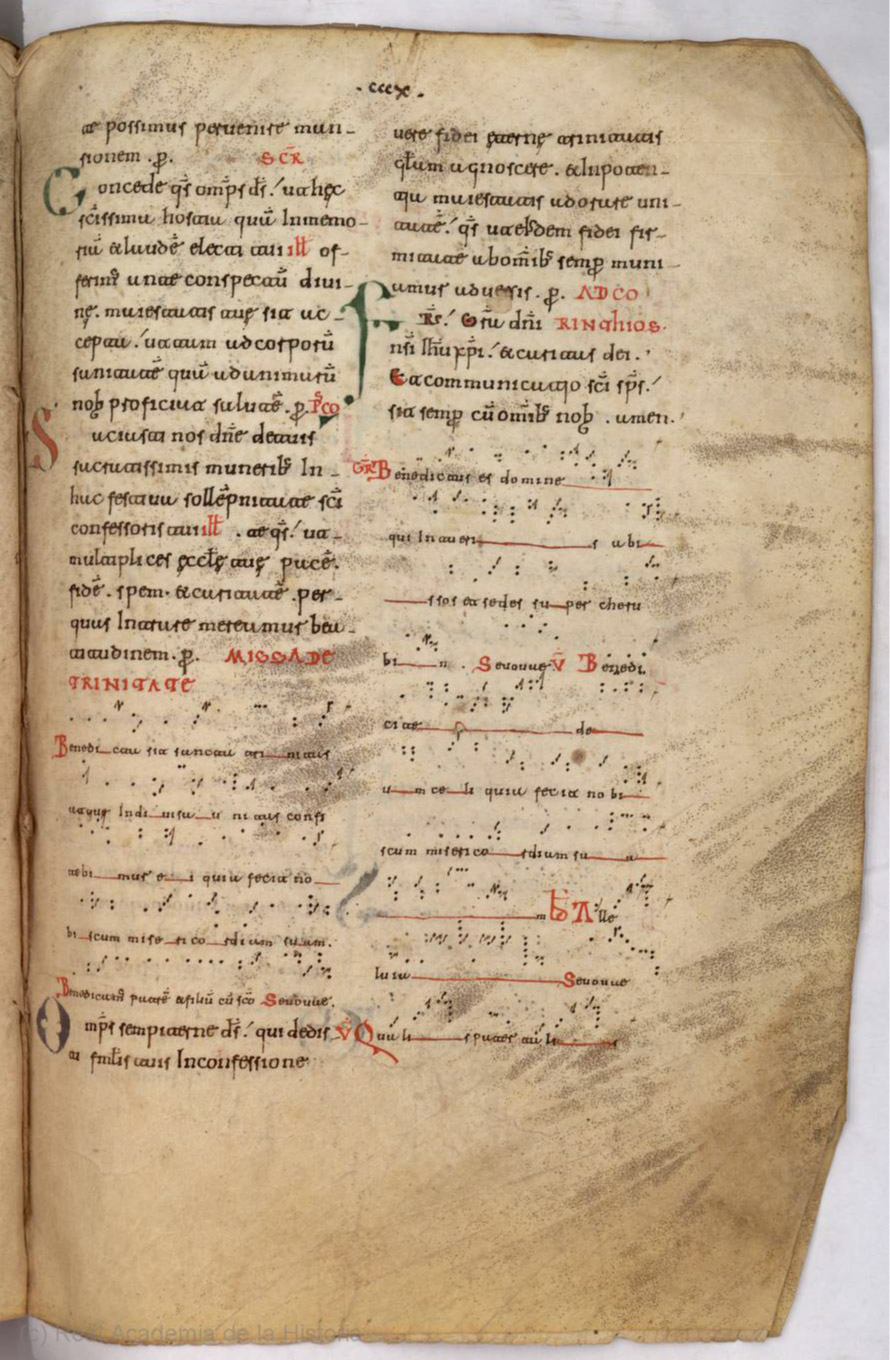 . cccx .
ae possimus peruenire man-
sionem . p. SCR
Concede qs omps ds ut hec
scissima hostia qua In memo-
ria et laude electi tui ill of-
ferimus ante conspectu diui-
ne . maiestatis tue sit ac-
cepta ut tam ad corporu
sanitate qua ad animaru
nob proficiat salute . p. Pco
Saciasti nos dne de tuis
sacratissimis munerib In
hac festiua sollepnitate sci
confessoris tui ill . te qs ut
multiplices eccle tue pace .
fide . spem . et caritate . per-
quas Inature mereamur bea-
titudinem . p. MISSA DE
TRINITATE
Benedicta sit sancta trinitas
atque Indiuisa unitas confi
tebimur ei quia fecit no
biscum misericordiam suam .
Benedicam patre et filiu cu sco Seuouae .
Omps sempiterne ds qui dedis
ti fmlis tuis Inconfessione
uere fidei eterne trinitatis
glam agnoscere . et Inpoten-
tia maiestatis adorare uni-
tate qs ut eidem fidei fir-
mitate ab omib semp muni-
amur aduersis . p. AD CO
RINTHIOS .
Frs Gra dni
nsi ihu xpi et caritas dei .
Et communicatio sci sps
sit semp cu omib nob . amen .
GR Benedictus es domine
qui Intueris abi
ssos et sedes super cheru
bin . Seuouae V Benedi
cite de
um celi quia fecit nobi
scum misericordiam sua
m Alle
luia Seuouae
V Qualis pater talis